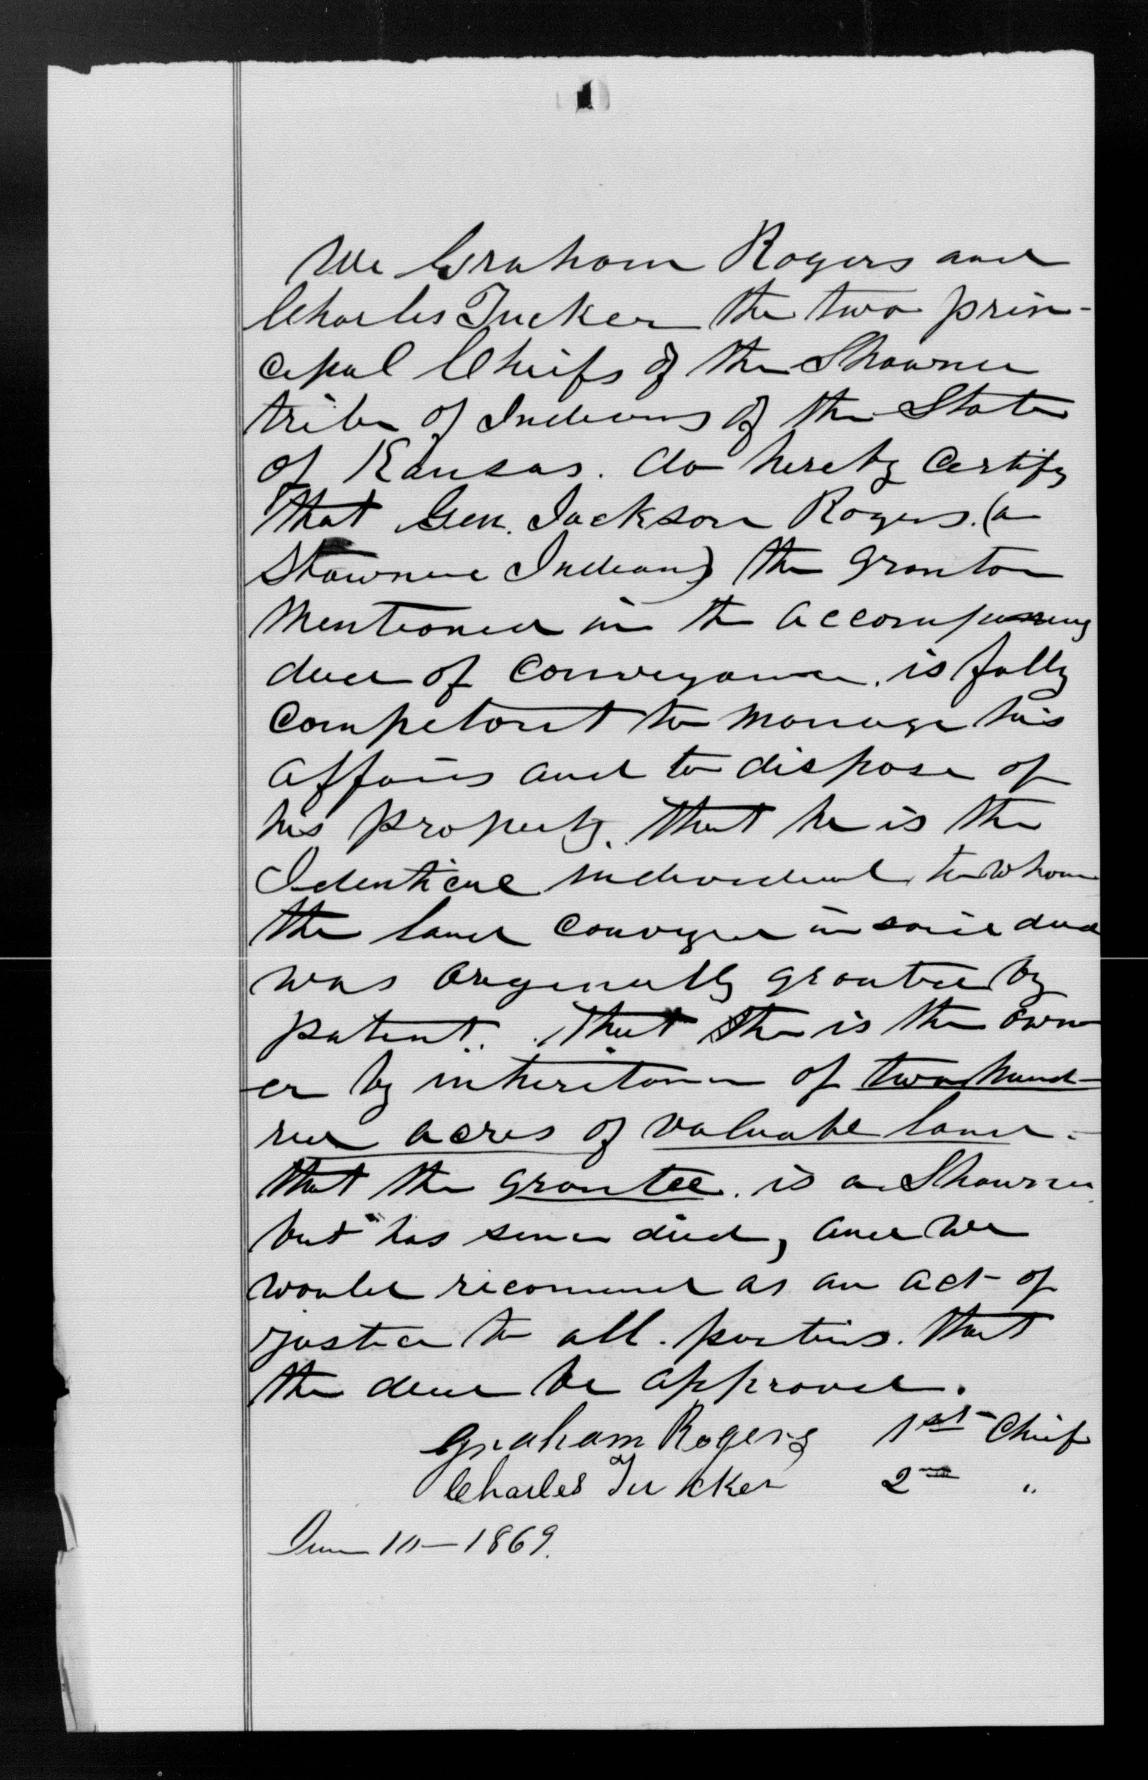 1
We Graham Rogers and
Charles Tucker the two prin-
cipal Chiefs of the Shawnee
tribe of Indians of the State
of Kansas. do hereby certify
that Gen. Jackson Rogers. (a
Shawnee Indian) the grantor
mentioned in the accompanying
deed of conveyance. is fully
competent to manage his
affairs and to dispose of
his property. that he is the
Identical individual to whom
the land conveyed in said deed
was originally granted by
patent. That he is the own
er by inheritance of two hund-
red acres of valuable land.-
that the grantee. is a Shawnee
but has since died, and we
would recommend as an act of
justice to all. parties. that
the deed be approved.
Graham Rogers 1st Chief
Charles Tucker 2nd "
June 10-1869.